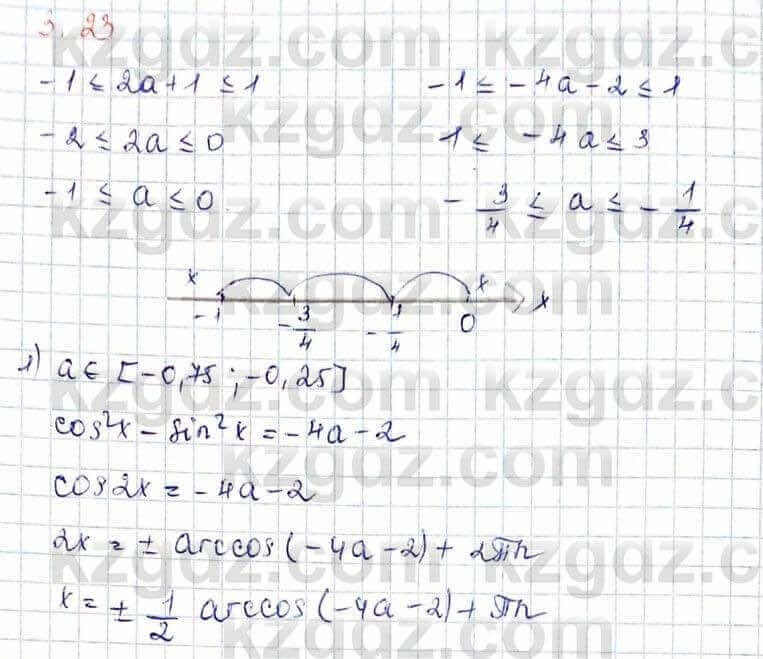 3.23
-1 ≤ 2a+1 ≤ 1 -1 ≤ -4a-2 ≤ 1
-2 ≤ 2a ≤ 0 1 ≤ -4a ≤ 3
-1 ≤ a ≤ 0 -3/4 ≤ a ≤ -1/4
x x x
-1 -3/4 -1/4 0
1) a ∈ [-0,75 ; -0,25]
cos²x - sin²x = -4a-2
cos2x = -4a-2
2x = ± arccos(-4a-2) + 2πn
x = ± 1/2 arccos(-4a-2) + πn
kzgdz.com